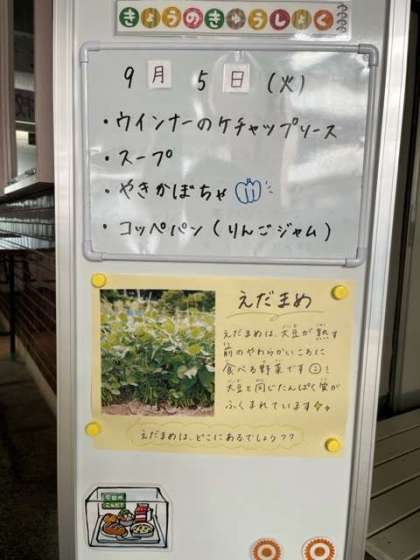 きょうのきゅうしょく
9月 5日 (火)
・ウインナーのケチャップソース
・スープ
・やきかぼちゃ
・コッペパン(りんごジャム)
えだまめ
えだまめは、大豆が熟す
前のやわらかいころに
食べる野菜です!
大豆と同じたんぱく質が
ふくまれています
えだまめは、どこにあるでしょう??